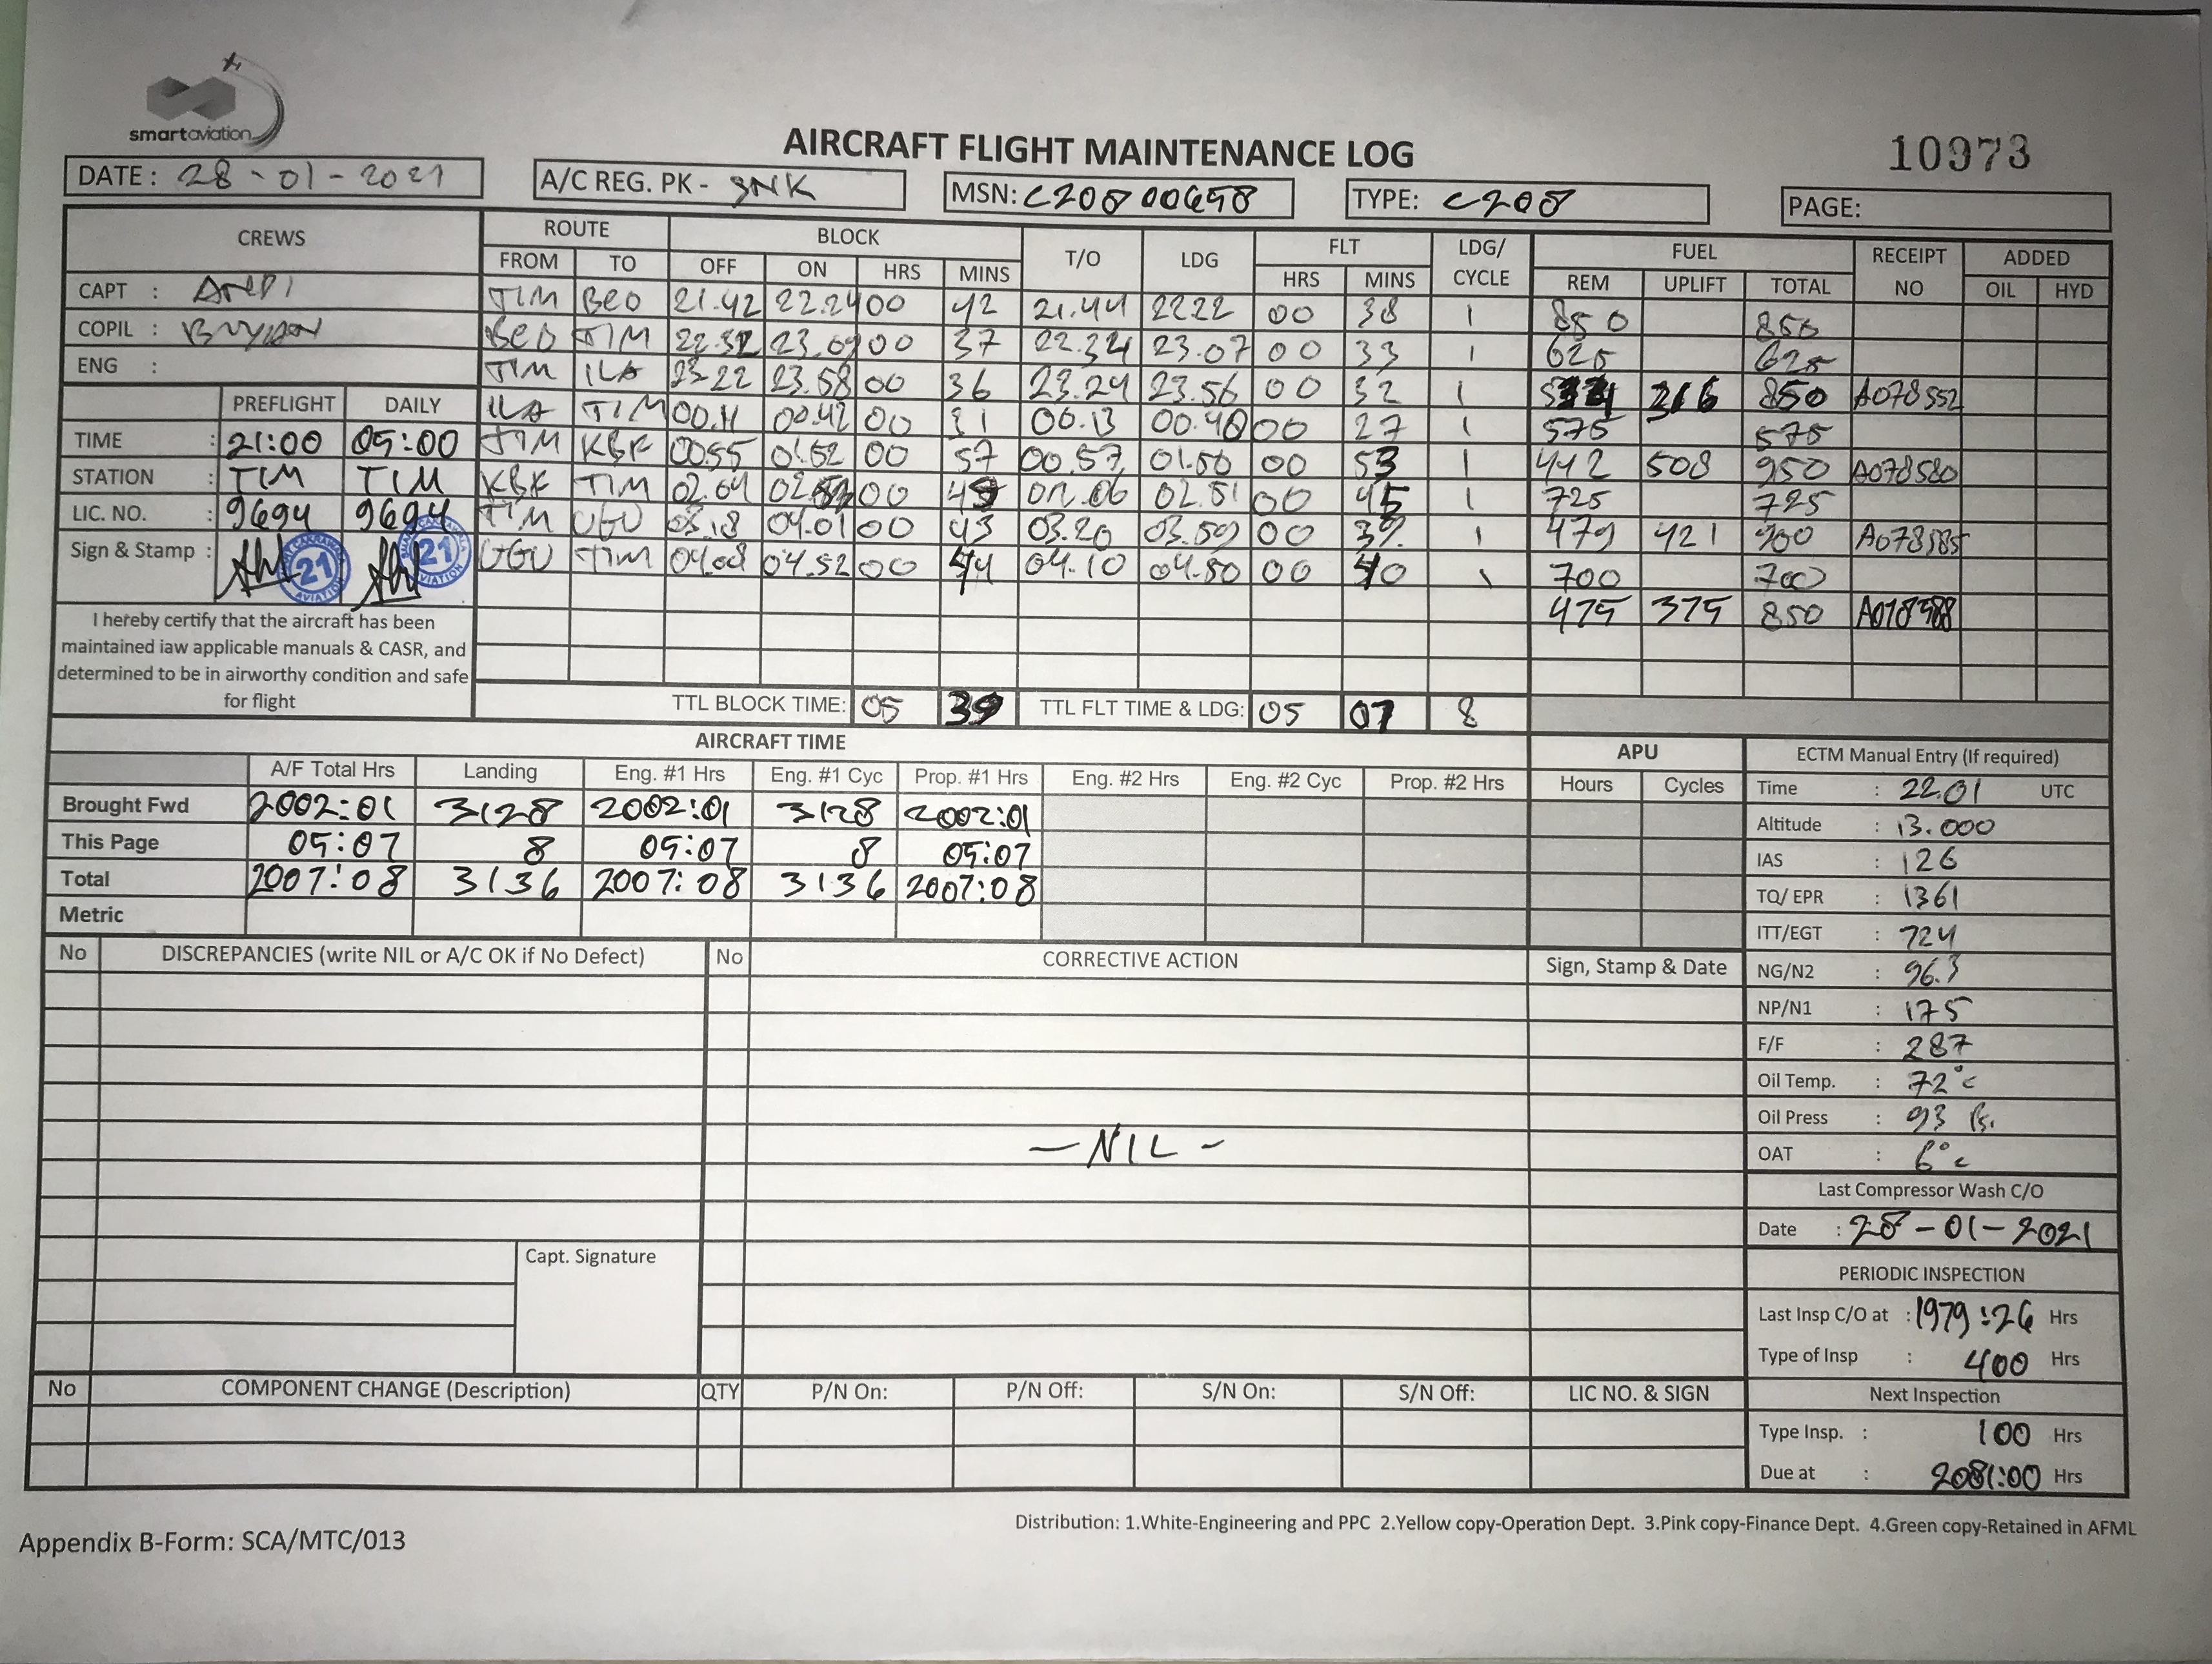 smartaviation
AIRCRAFT FLIGHT MAINTENANCE LOG
10973
DATE: 28-01-2021
A/C REG. PK - SNK
MSN: C20800658
TYPE: C208
PAGE:
CREWS ROUTE BLOCK T/O LDG FLT LDG/CYCLE FUEL RECEIPT NO ADDED
FROM TO OFF ON HRS MINS HRS MINS REM UPLIFT TOTAL OIL HYD
CAPT : ANDI
COPIL :
ENG :
TIM BEO 21.42 22.24 00 42 21.44 2222 00 38 1 850 850
BEO TIM 22.32 23.09 00 37 22.34 23.07 00 33 1 625 625
TIM ILA 23.22 23.58 00 36 23.24 23.56 00 32 1 316 850 A078552
ILA TIM 00.11 00.42 00 31 00.13 00.40 00 27 1 575 575
TIM KBF 0055 01.52 00 57 00.57 01.50 00 53 1 442 508 950 A078580
KBF TIM 02.04 00 02.06 02.51 00 45 1 725 725
TIM UGU 03.18 04.01 00 43 03.20 03.59 00 39 1 479 421 900 A078585
UGU TIM 04.08 04.52 00 44 04.10 04.50 00 40 1 700 700
475 375 850 A078588
PREFLIGHT DAILY
TIME : 21:00 05:00
STATION : TIM TIM
LIC. NO. : 9694 9694
Sign & Stamp :
21 AVIATION
21 AVIATION
I hereby certify that the aircraft has been
maintained iaw applicable manuals & CASR, and
determined to be in airworthy condition and safe
for flight
TTL BLOCK TIME: 05 39 TTL FLT TIME & LDG: 05 07 8
AIRCRAFT TIME
A/F Total Hrs Landing Eng. #1 Hrs Eng. #1 Cyc Prop. #1 Hrs Eng. #2 Hrs Eng. #2 Cyc Prop. #2 Hrs
Brought Fwd 2002:01 3128 2002:01 3128 2002:01
This Page 05:07 8 05:07 8 05:07
Total 2007:08 3136 2007:08 3136 2007:08
Metric
APU
Hours Cycles
ECTM Manual Entry (If required)
Time : 22.01 UTC
Altitude : 13.000
IAS : 126
TQ/ EPR : 1361
ITT/EGT : 724
NG/N2 : 96.3
NP/N1 : 175
F/F : 287
Oil Temp. : 72°c
Oil Press : 93 Psi
OAT : 6°c
Last Compressor Wash C/O
Date : 28-01-2021
PERIODIC INSPECTION
Last Insp C/O at : 1979:26 Hrs
Type of Insp : 400 Hrs
Next Inspection
Type Insp. : 100 Hrs
Due at : 2081:00 Hrs
No DISCREPANCIES (write NIL or A/C OK if No Defect) No CORRECTIVE ACTION Sign, Stamp & Date
— NIL -
Capt. Signature
No COMPONENT CHANGE (Description) QTY P/N On: P/N Off: S/N On: S/N Off: LIC NO. & SIGN
Distribution: 1.White-Engineering and PPC 2.Yellow copy-Operation Dept. 3.Pink copy-Finance Dept. 4.Green copy-Retained in AFML
Appendix B-Form: SCA/MTC/013